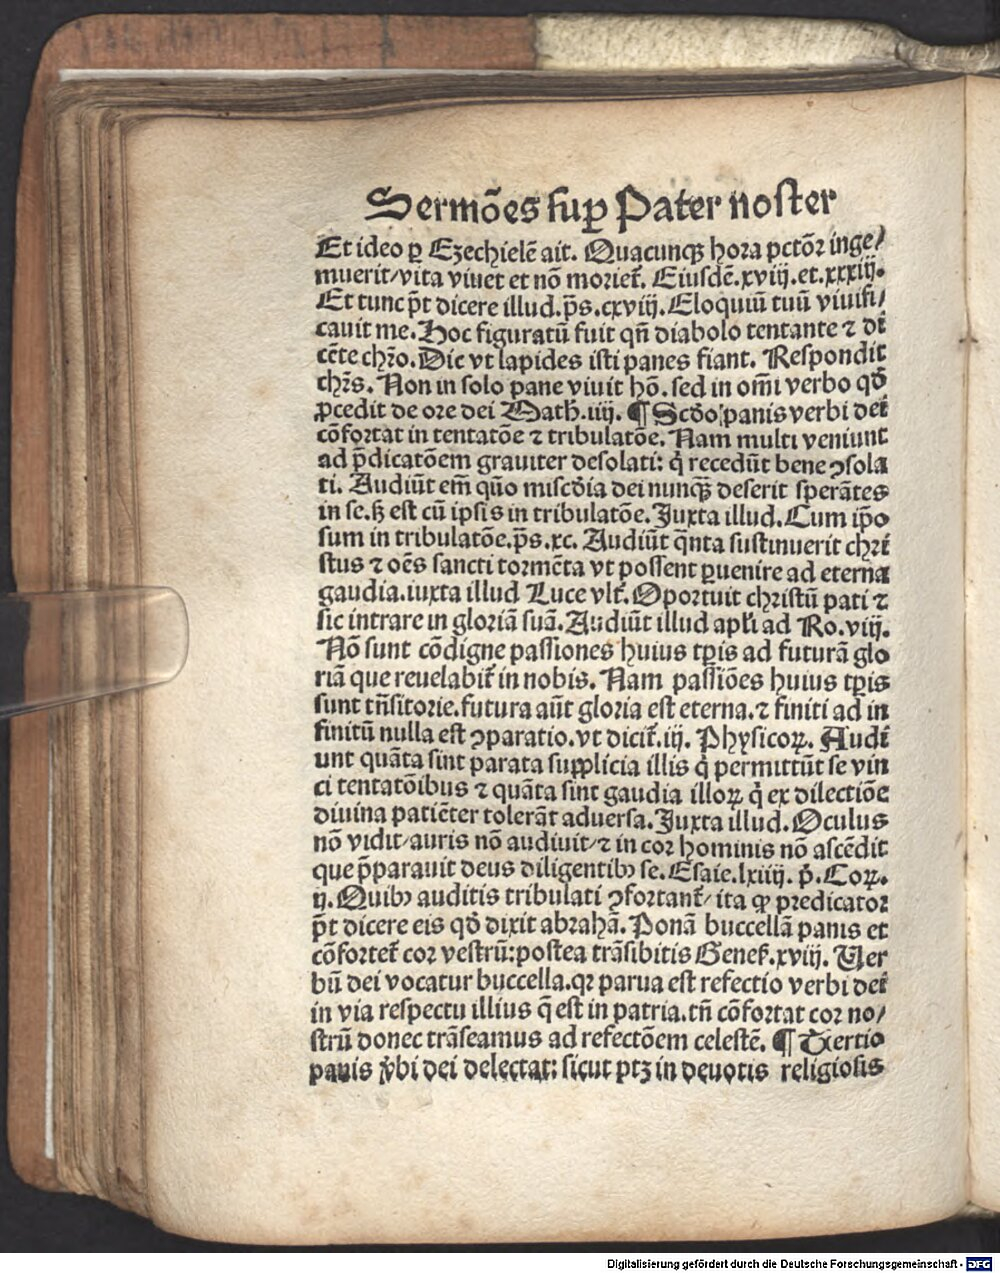 Sermões sup Pater noster
Et ideo ꝑ Ezechielē ait. Quacunqꝫ hora pctõr inge/
muerit/vita viuet et nõ moriet̃. Eiusdē.xviij.et.xxxiij.
Et tunc p̃t dicere illud.p̃s.cxviij.Eloquiū tuū viuifi/
cauit me.Hoc figuratū fuit qñ diabolo tentante ⁊ di
cēte chr̃o.Dic vt lapides isti panes fiant. Respondit
chr̃s. Non in solo pane viuit hõ.sed in om̃i verbo qđ
ꝓcedit de ore dei Math̃.iiij. ¶ Scđo panis verbi dei
cõfortat in tentatõe ⁊ tribulatõe. Nam multi veniunt
ad p̃dicatõem grauiter desolati: q̇ recedūt bene ꝯsola
ti. Audiūt em̃ quõ misc̃dia dei nunqꝫ̃ deserit sperãtes
in se.sꝫ est cū ipsis in tribulatõe.Juxta illud.Cum ip̃o
sum in tribulatõe.p̃s.xc. Audiūt q̃nta sustinuerit chri
stus ⁊ oẽs sancti tormēta vt possent ꝑuenire ad eterna
gaudia.iuxta illud Luce vlt̃.Oportuit christū pati ⁊
sic intrare in gloriã suã.Audiūt illud apl̃i ad Ro.viij.
Nõ sunt cõdigne passiones huius tꝑis ad futurã glo
riã que reuelabit̃ in nobis. Nam passiões huius tꝑis
sunt trñsitorie.futura aūt gloria est eterna.⁊ finiti ad in
finitū nulla est ꝯparatio.vt dicit̃.iij. Physicoꝝ. Audi
unt quãta sint parata supplicia illis q̇ permittūt se vin
ci tentatõibus ⁊ quãta sint gaudia illoꝝ q̇ ex dilectiõe
diuina patiēter tolerãt aduersa.Juxta illud.Oculus
nõ vidit/auris nõ audiuit/⁊ in cor hominis nõ ascēdit
que p̃parauit deus diligentibꝰ se.Esaie.lxiiij. p̃.Coꝝ.
ij.Quibꝰ auditis tribulati ꝯfortant̃/ita ꝙ predicator
p̃t dicere eis qđ dixit abrahã.Ponã buccellã panis et
cõfortet̃ cor vestrū:postea trãsibitis Genes̃.xviij. Ver
bū dei vocatur buccella.qꝛ parua est refectio verbi dei
in via respectu illius q̃ est in patria.tñ cõfortat cor no/
strū donec trãseamus ad refectõem celestē. ¶ Tertio
panis v̓bi dei delectat: sicut ptꝫ in deuotis religiosis
Digitalisierung gefördert durch die Deutsche Forschungsgemeinschaft - DFG